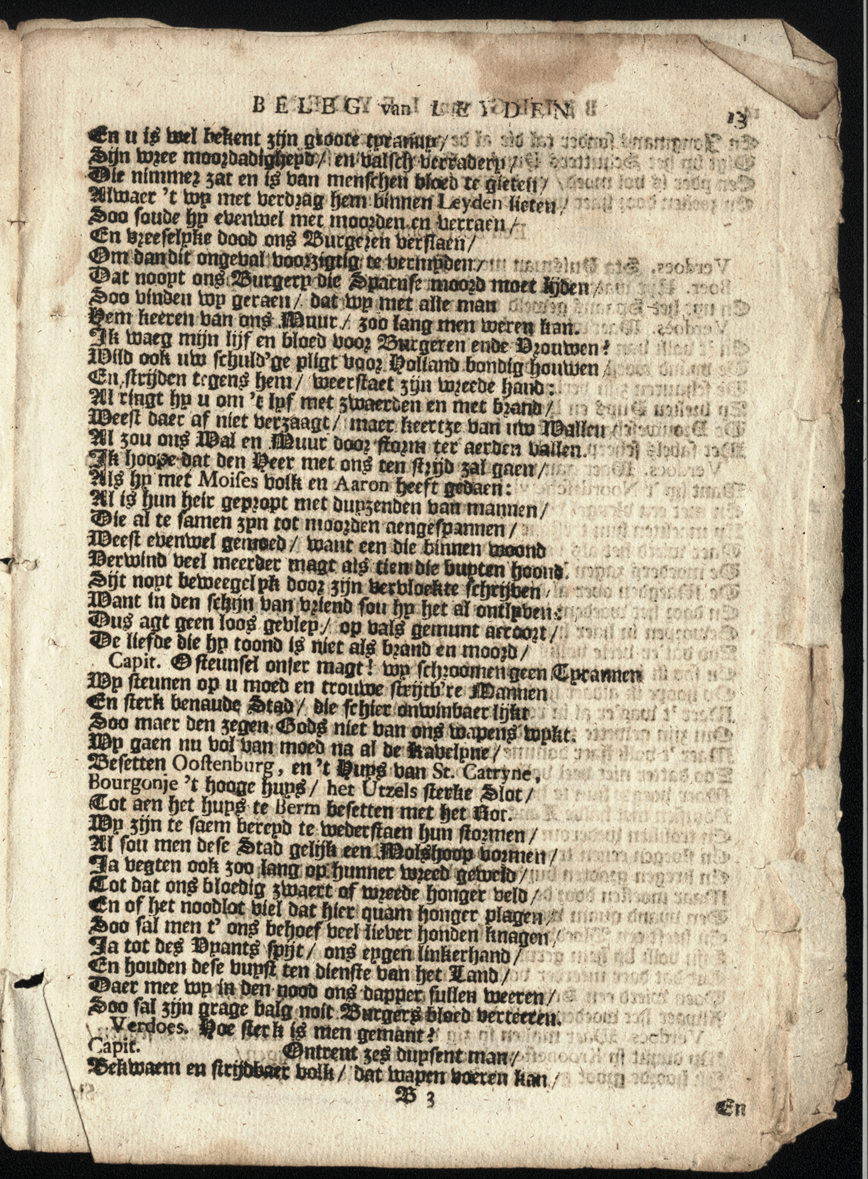 BELEG van LEYDEN 13
En u is wel bekent zijn groote tyranny/
Sijn wree moordadigheyd/ en valsch verradery/
Die nimmer zat en is van menschen bloed te gieten/
Alwaer 't wy met verdrag hem binnen Leyden lieten/
Soo soude hy evenwel met moorden en verraen/
En vreeselyke dood ons Burgeren verslaen/
Om dan dit ongeval voorzigtig te vermyden/
Dat noopt ons Burgery die Spaense moord moet lijden/
Soo vinden wy geraen/ dat wy met alle man
Hem keeren van ons Muur/ zoo lang men weren kan.
Ik waeg mijn lijf en bloed voor Burgeren ende Vrouwen!
Wild ook uw schuld'ge pligt voor Holland bondig houwen/
En strijden tegens hem/ weerstaet zijn wreede hand:
Al ringt hy u om 't lyf met zwaerden en met brand/
Weest daer af niet verzaagt/ maer keertze van uw Wallen/
Al zou ons Wal en Muur door storm ter aerden vallen.
Ik hoope dat den Heer met ons ten strijd zal gaen/
Als hy met Moises volk en Aaron heeft gedaen:
Al is hun heir gepropt met duyzenden van mannen/
Die al te samen zyn tot moorden aengespannen/
Weest evenwel gemoed/ want een die binnen woond
Verwind veel meerder magt als tien die buyten hoond.
Sijt noyt beweegelyk door zijn vervloekte schrijven/
Want in den schijn van vriend sou hy het al ontlyven:
Dus agt geen loos gevley/ op vals gemunt accoort/
De liefde die hy toond is niet als brand en moord/
Capit. O steunsel onser magt! wy schroomen geen Tyrannen
Wy steunen op u moed en trouwe strijtb're Mannen
En sterk benaude Stad/ die schier onwinbaer lijkt
Soo maer den zegen Gods niet van ons wapens wykt.
Wy gaen nu vol van moed na al de Ravelyne/
Besetten Oostenburg, en 't Huys van St. Catryne,
Bourgonje 't hooge huys/ het Utzels sterke Slot/
Tot aen het huys te Berm besetten met het Rot.
Wy zijn te saem bereyd te wederstaen hun stormen/
Al sou men dese Stad gelijk een Molshoop vormen/
Ja vegten ook zoo lang op hunner wreed geweld/
Tot dat ons bloedig zwaert of wreede honger veld/
En of het noodlot viel dat hier quam honger plagen/
Soo sal men t' ons behoef veel liever honden knagen/
Ja tot des Vyants spijt/ ons eygen linkerhand/
En houden dese vuyst ten dienste van het Land/
Daer mee wy in den nood ons dapper sullen weeren/
Soo sal zijn grage balg noit Burgers bloed verteeren.
Verdoes. Hoe sterk is men gemant?
Capit. Ontrent zes duysent man/
Bekwaem en strijdbaer volk/ dat wapen voeren kan/
B 3
En